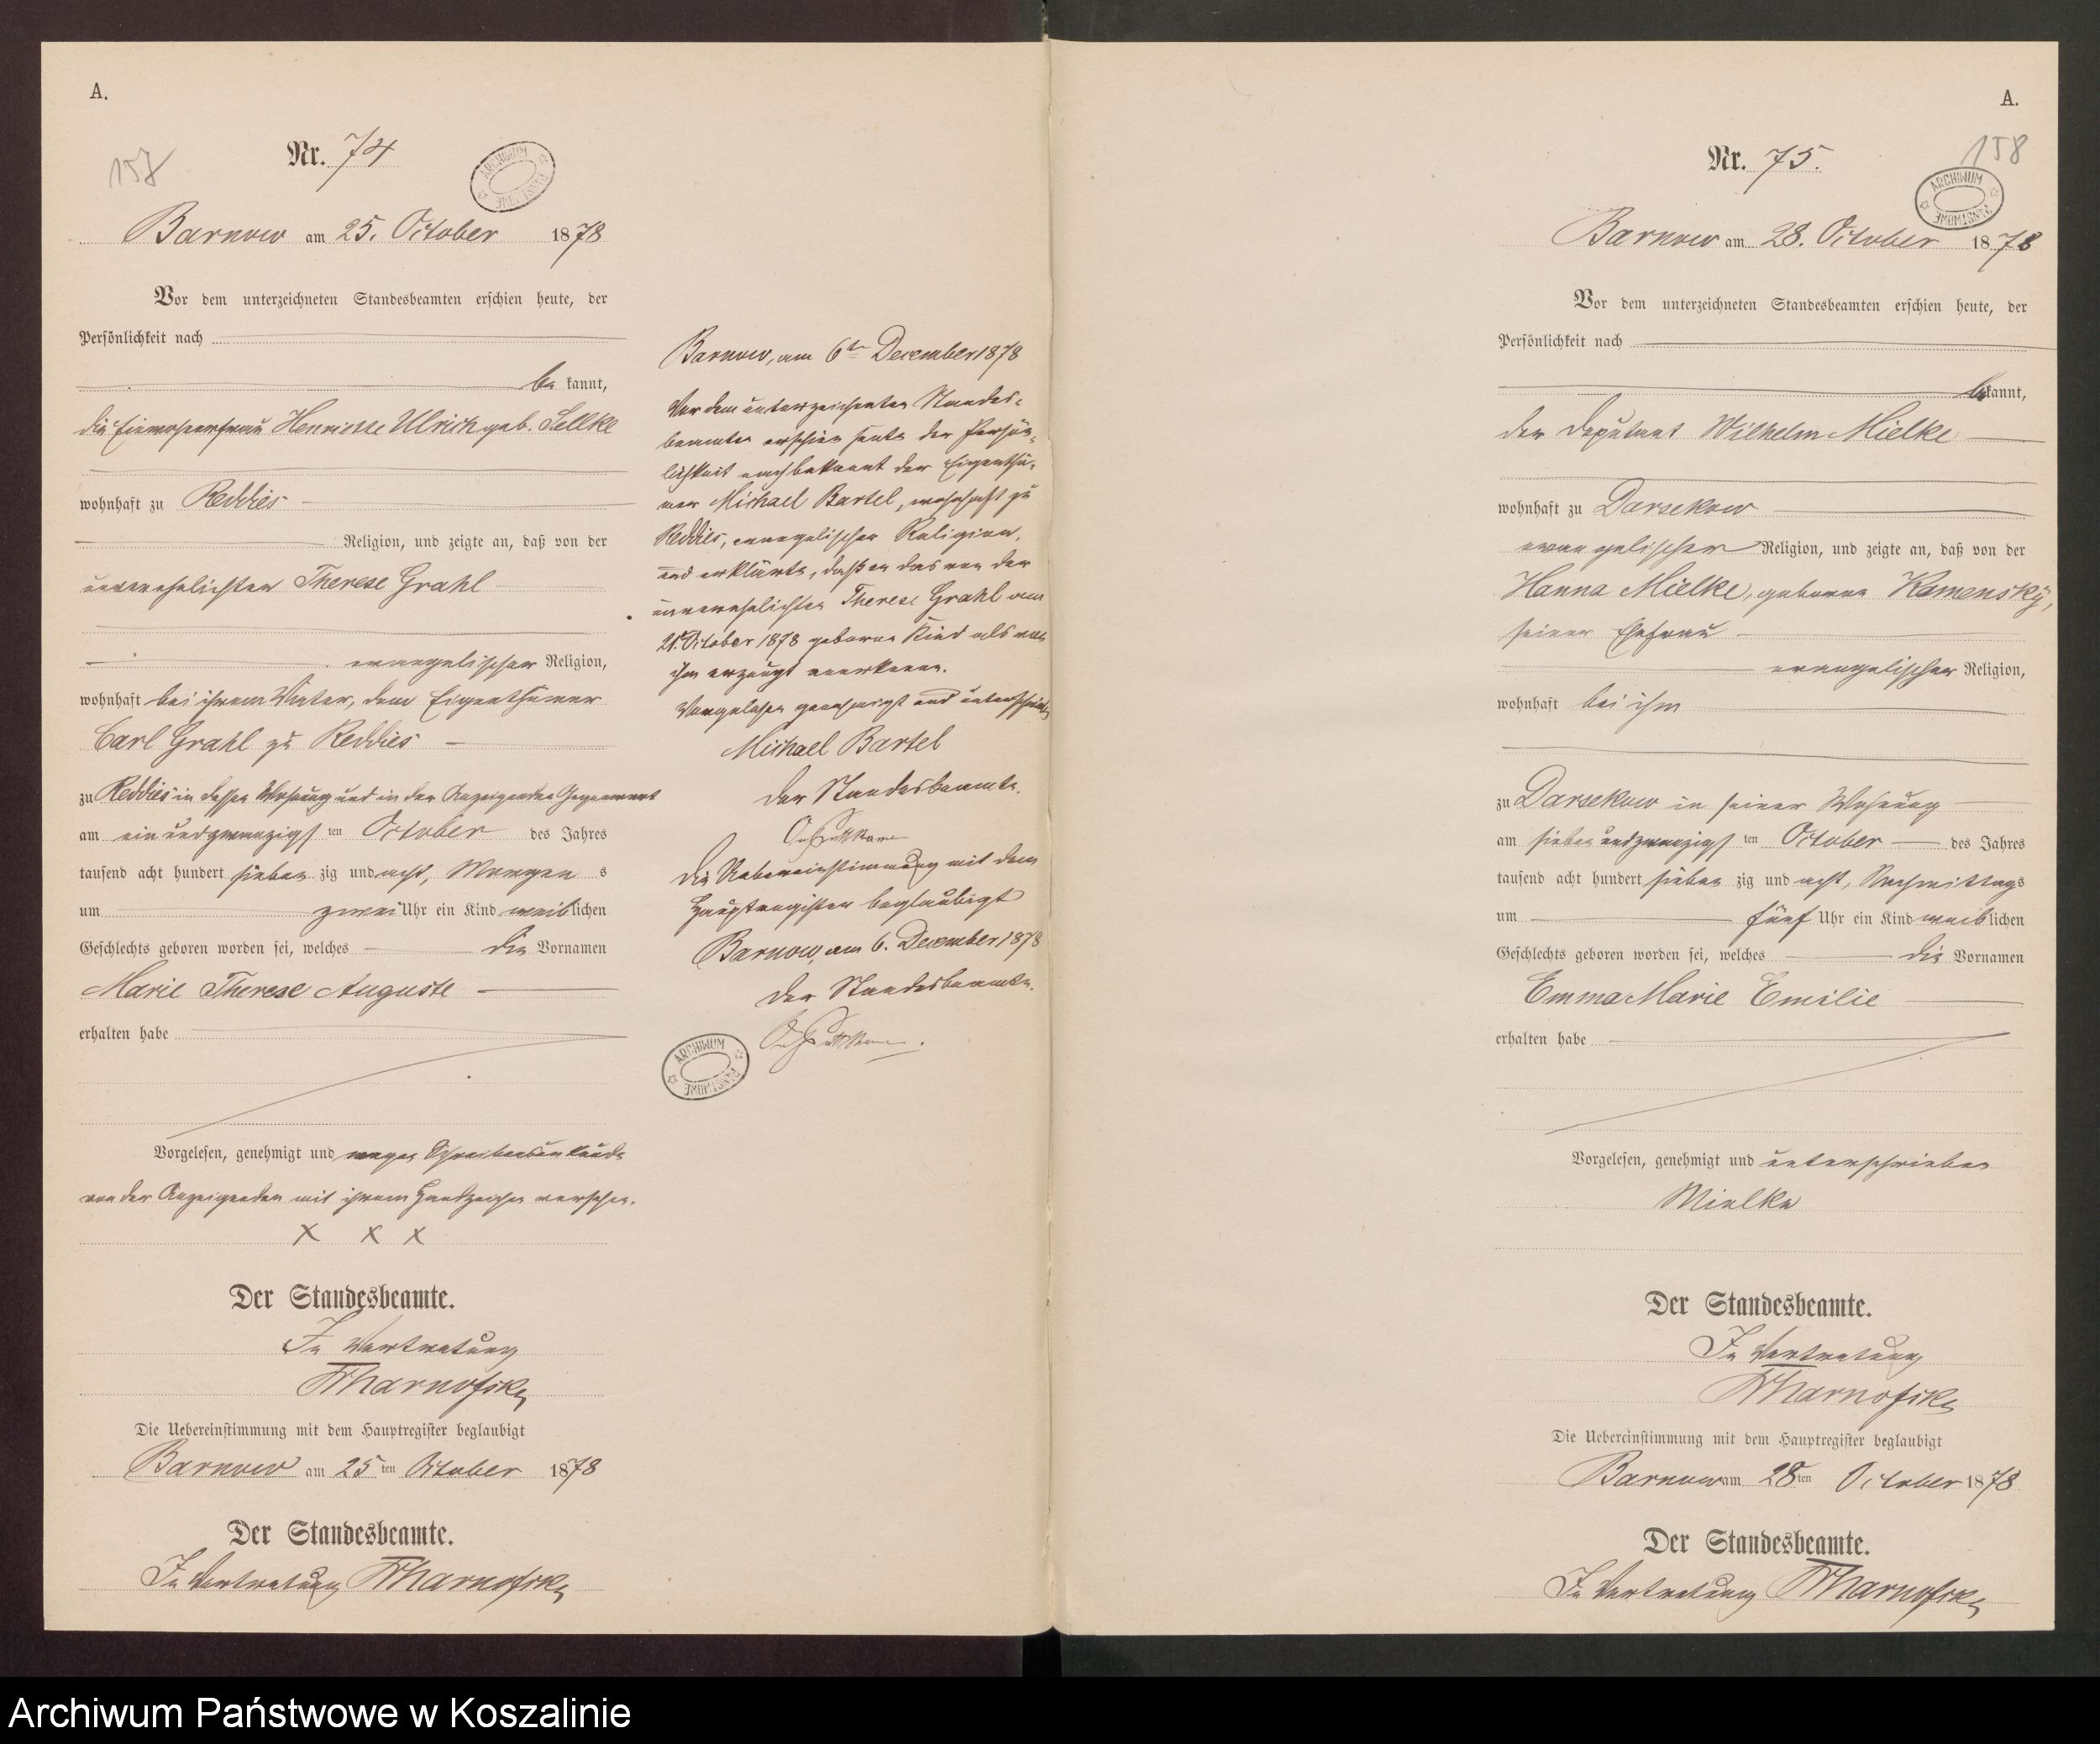 A.
158
Nr. 74
ARCHIWUM PAŃSTWOWE
Barnow am 25. October 1878
Vor dem unterzeichneten Standesbeamten erschien heute, der
Persönlichkeit nach
be kannt,
die Einwohnerfrau Henriette Ulrich geb. Sellke
wohnhaft zu Reddies
Religion, und zeigte an, daß von der
unverehelichten Therese Grahl
evangelischer Religion,
wohnhaft bei ihrem Vater, dem Eigenthümer
Carl Grahl zu Reddies
zu Reddies in dessen Wohnung und in der Anzeigenden Gegenwart
am ein und zwanzigs ten October des Jahres
tausend acht hundert sieben zig und acht, Morgen s
um zwei Uhr ein Kind weib lichen
Geschlechts geboren worden sei, welches die Vornamen
Marie Therese Auguste
erhalten habe
Vorgelesen, genehmigt und wegen Schreibensunkunde
von der Anzeigenden mit ihrem Handzeichen versehen.
X X X
Der Standesbeamte.
In Vertretung
Die Uebereinstimmung mit dem Hauptregister beglaubigt
Barnow am 25 ten October 1878
Der Standesbeamte.
In Vertretung
Barnow, am 6ten December 1878
Vor dem unterzeichneten Standes-
beamten erschien heute der Persön-
lichkeit nach bekannt der Eigenthü-
mer Michael Bartel, wohnhaft zu
Reddies, evangelischer Religion,
und erklärte, daß er das von der
unverehelichten Therese Grahl am
21. October 1878 geborene Kind als von
ihm erzeugt anerkenne.
Vorgelesen genehmigt und unterschrieben
Michael Bartel
Der Standesbeamte.
Die Uebereinstimmung mit dem
Hauptregister beglaubigt
Barnow, am 6. December 1878
Der Standesbeamte.
ARCHIWUM PAŃSTWOWE
A.
158
Nr. 75.
ARCHIWUM PAŃSTWOWE
Barnow am 28. October 1878
Vor dem unterzeichneten Standesbeamten erschien heute, der
Persönlichkeit nach
bekannt,
der Deputant Wilhelm Mielke
wohnhaft zu Darsekow
evangelischer Religion, und zeigte an, daß von der
Hanna Mielke, geborene Kamensky,
seiner Ehefrau
evangelischer Religion,
wohnhaft bei ihm
zu Darsekow in seiner Wohnung
am sieben und zwanzigs ten October des Jahres
tausend acht hundert sieben zig und acht, Nachmittags
um fünf Uhr ein Kind weib lichen
Geschlechts geboren worden sei, welches die Vornamen
Emma Marie Emilie
erhalten habe
Vorgelesen, genehmigt und unterschrieben
Mielke
Der Standesbeamte.
In Vertretung
Die Uebereinstimmung mit dem Hauptregister beglaubigt
Barnow am 28 ten October 1878
Der Standesbeamte.
In Vertretung
Archiwum Państwowe w Koszalinie